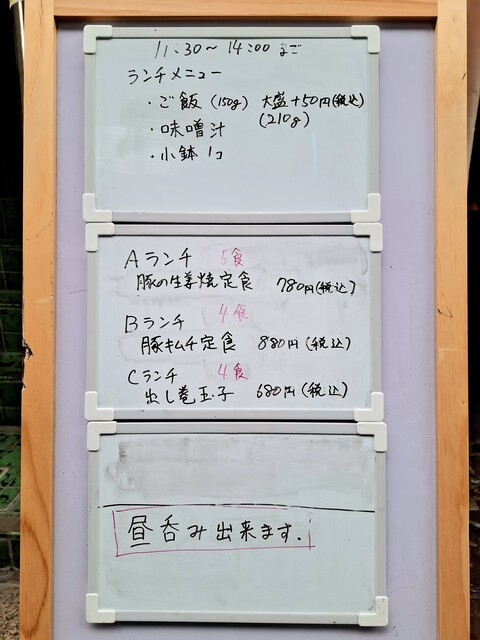 11:30～14:00まで
ランチメニュー
・ご飯(150g) 大盛+50円(税込)
(210g)
・味噌汁
・小鉢1コ
Aランチ 5食
豚の生姜焼定食 780円(税込)
Bランチ 4食
豚キムチ定食 880円(税込)
Cランチ 4食
出し巻玉子 680円(税込)
昼呑み出来ます.